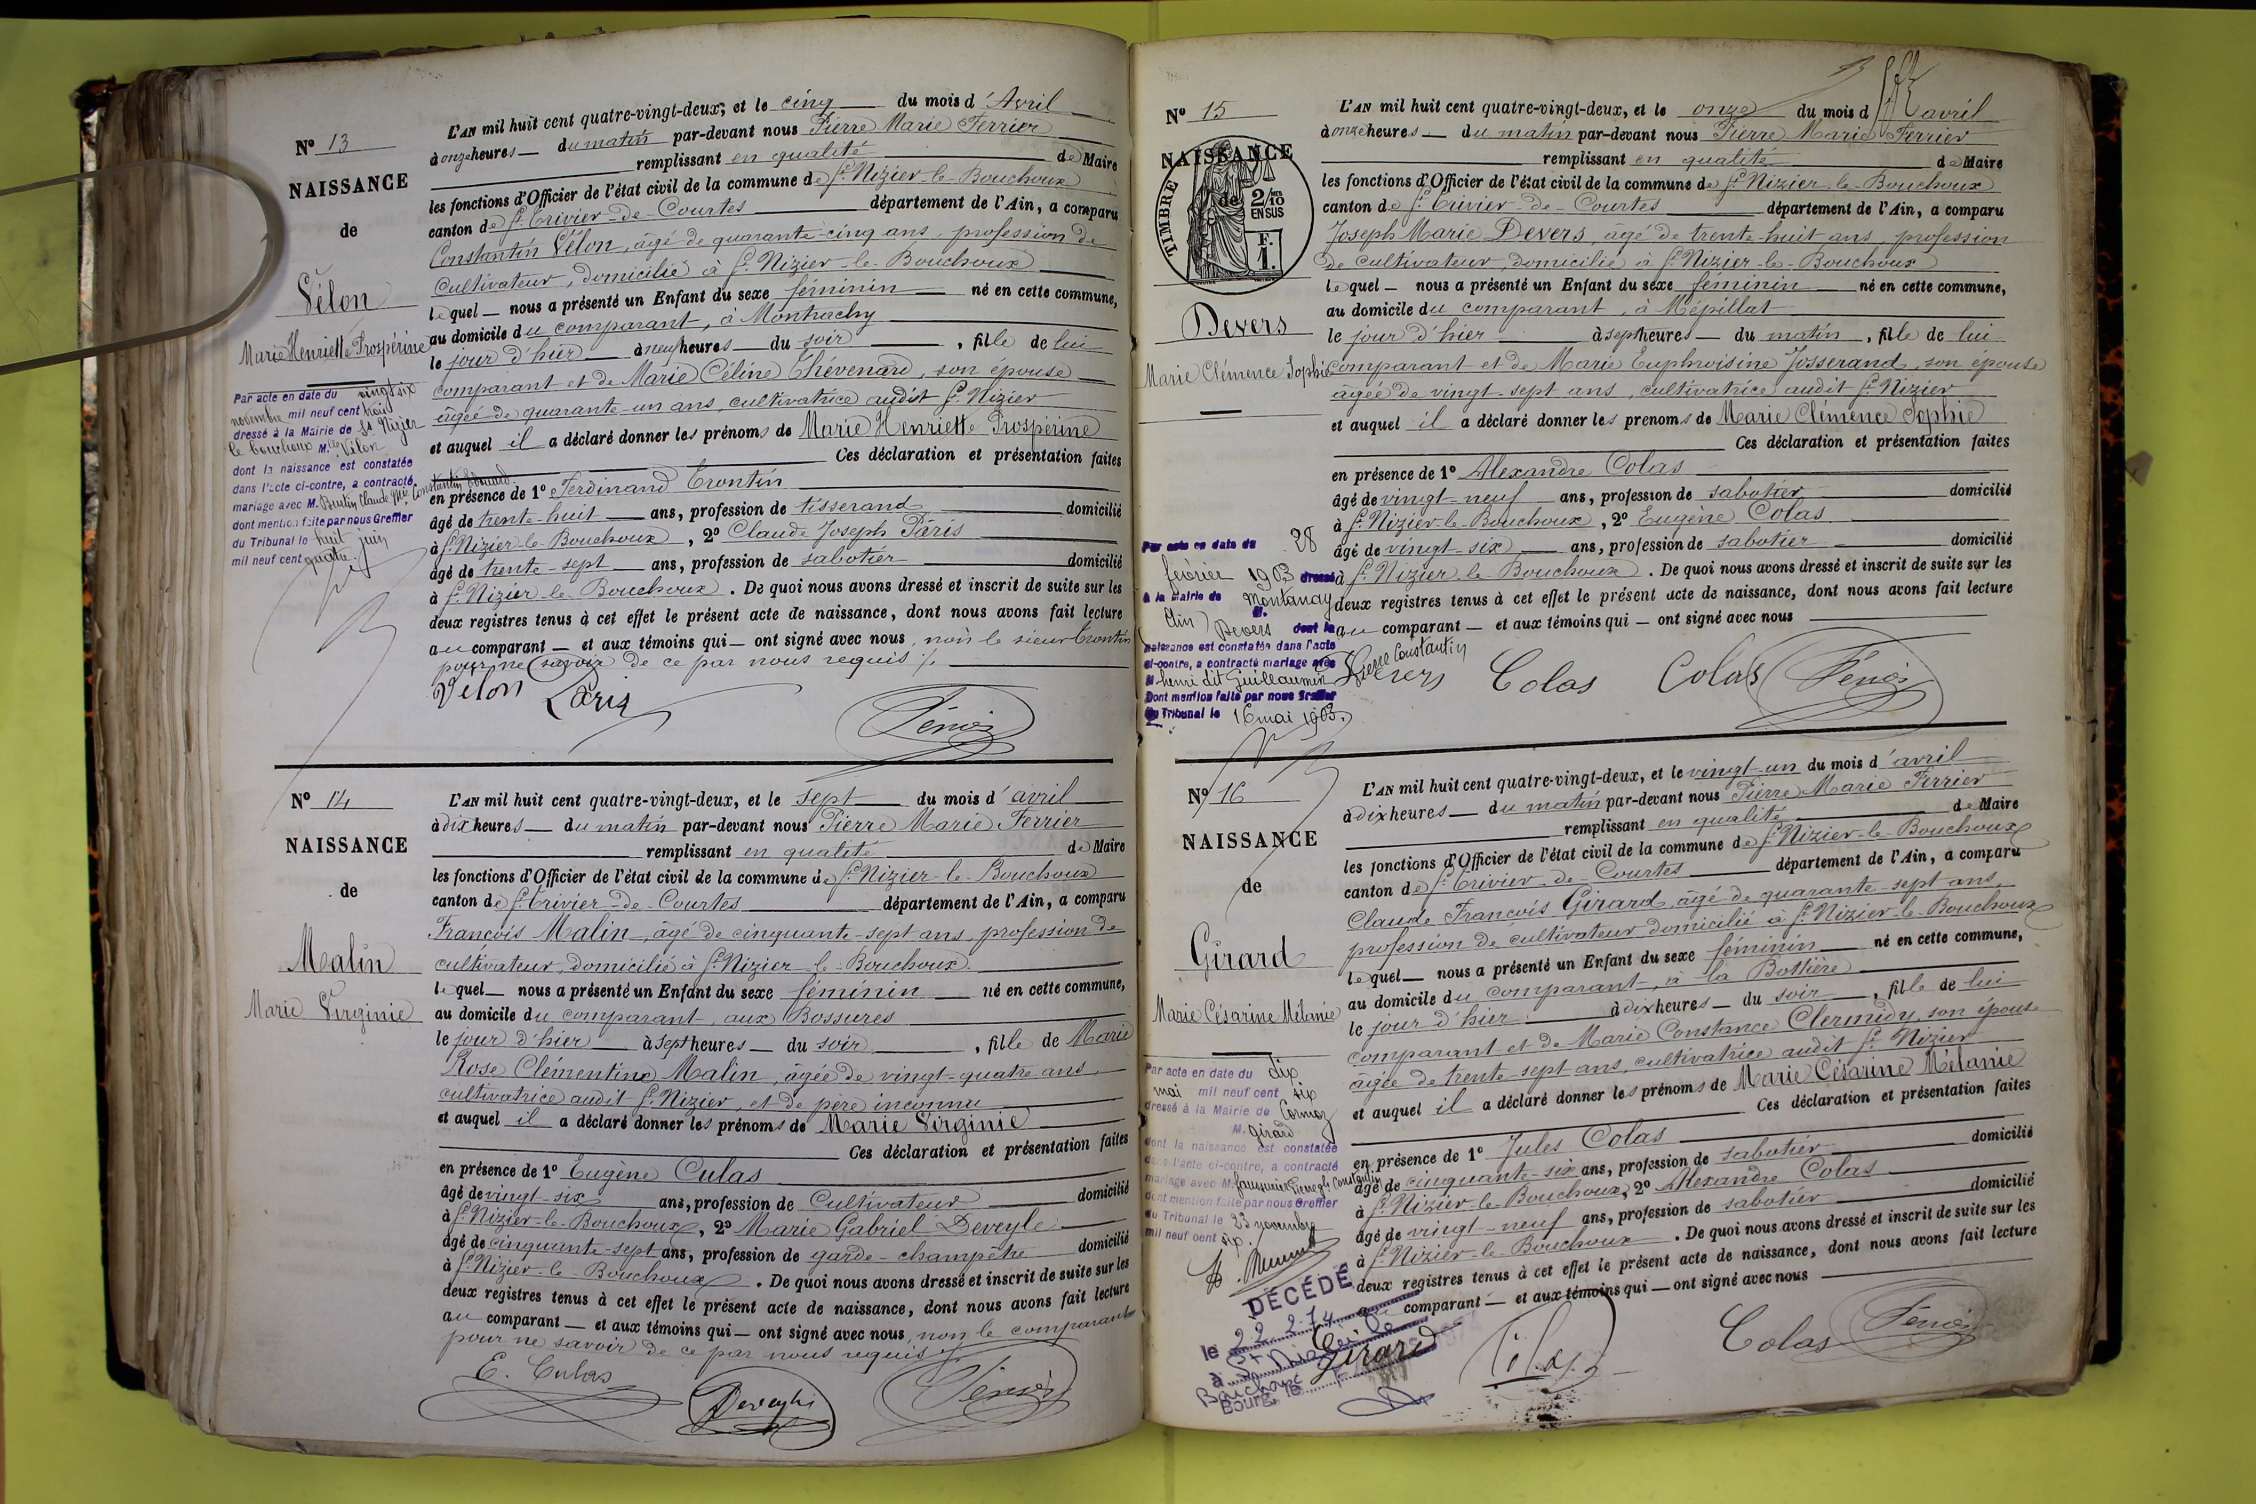 Nº 13
NAISSANCE
de
Vélon
Marie Henriette Prospérine
Par acte en date du vingt six
novembre mil neuf cent trois
dressé à la Mairie de St Nizier
le bouchoux Mlle Vélon
dont la naissance est constatée
dans l'acte ci-contre, a contracté
mariage avec M. Claude Mie Constantin Edouard
dont mention faite par nous Greffier
du Tribunal le huit juin
mil neuf cent quatre.
L'AN mil huit cent quatre-vingt-deux, et le cinq du mois d'Avril
à onze heures du matin par-devant nous Pierre Marie Ferrier
remplissant en qualité de Maire
les fonctions d'Officier de l'état civil de la commune de St Nizier-le-Bouchoux
canton de St Trivier-de-Courtes département de l'Ain, a comparu
Constantin Vélon, âgé de quarante-cinq ans, profession de
cultivateur, domicilié à St Nizier-le-Bouchoux
lequel nous a présenté un Enfant du sexe féminin né en cette commune,
au domicile du comparant, à Montrachy
le jour d'hier à neuf heures du soir, fille de lui
comparant et de Marie Céline Chévenard, son épouse
âgée de quarante-un ans, cultivatrice audit St Nizier
et auquel il a déclaré donner les prénoms de Marie Henriette Prospérine
Ces déclaration et présentation faites
en présence de 1º Ferdinand Trontin
âgé de trente-huit ans, profession de tisserand domicilié
à St Nizier-le-Bouchoux, 2º Claude Joseph Pâris
âgé de trente-sept ans, profession de sabotier domicilié
à St Nizier-le-Bouchoux. De quoi nous avons dressé et inscrit de suite sur les
deux registres tenus à cet effet le présent acte de naissance, dont nous avons fait lecture
au comparant et aux témoins qui ont signé avec nous, non le sieur Trontin
pour ne savoir de ce par nous requis ./.
Vélon Paris
Nº 14
NAISSANCE
de
Malin
Marie Virginie
L'AN mil huit cent quatre-vingt-deux, et le sept du mois d'avril
à dix heures du matin par-devant nous Pierre Marie Ferrier
remplissant en qualité de Maire
les fonctions d'Officier de l'état civil de la commune de St Nizier-le-Bouchoux
canton de St Trivier-de-Courtes département de l'Ain, a comparu
François Malin, âgé de cinquante-sept ans, profession de
cultivateur, domicilié à St Nizier-le-Bouchoux
lequel nous a présenté un Enfant du sexe féminin né en cette commune,
au domicile du comparant, aux Bossures
le jour d'hier à sept heures du soir, fille de Marie
Rose Clémentine Malin, âgée de vingt-quatre ans,
cultivatrice audit St Nizier, et de père inconnu
et auquel il a déclaré donner les prénoms de Marie Virginie
Ces déclaration et présentation faites
en présence de 1º Eugène Culas
âgé de vingt-six ans, profession de Cultivateur domicilié
à St Nizier-le-Bouchoux, 2º Marie Gabriel Deveyle
âgé de cinquante-sept ans, profession de garde-champêtre domicilié
à St Nizier-le-Bouchoux. De quoi nous avons dressé et inscrit de suite sur les
deux registres tenus à cet effet le présent acte de naissance, dont nous avons fait lecture
au comparant et aux témoins qui ont signé avec nous, non le comparant
pour ne savoir de ce par nous requis
E. Culas Deveyle
Nº 15
NAISSANCE
de
TIMBRE
2/10 EN SUS
F. 1.
Devers
Marie Clémence Sophie
Par acte en date du 28
février 1903 dressé
à la Mairie de Montanay
(Ain) M. Devers dont la
naissance est constatée dans l'acte
ci-contre, a contracté mariage avec
M. henri dit Guillaumin Pierre Constantin
Dont mention faite par nous Greffier
du Tribunal le 16 mai 1903.
L'AN mil huit cent quatre-vingt-deux, et le onze du mois d'avril
à onze heures du matin par-devant nous Pierre Marie Ferrier
remplissant en qualité de Maire
les fonctions d'Officier de l'état civil de la commune de St Nizier-le-Bouchoux
canton de St Trivier-de-Courtes département de l'Ain, a comparu
Joseph Marie Devers, âgé de trente-huit ans, profession
de cultivateur, domicilié à St Nizier-le-Bouchoux
lequel nous a présenté un Enfant du sexe féminin né en cette commune,
au domicile du comparant, à Mépillat
le jour d'hier à sept heures du matin, fille de lui
comparant et de Marie Euphroisine Josserand, son épouse
âgée de vingt-sept ans, cultivatrice audit St Nizier
et auquel il a déclaré donner les prenoms de Marie Clémence Sophie
Ces déclaration et présentation faites
en présence de 1º Alexandre Colas
âgé de vingt-neuf ans, profession de sabotier domicilié
à St Nizier-le-Bouchoux, 2º Eugène Colas
âgé de vingt-six ans, profession de sabotier domicilié
à St Nizier-le-Bouchoux. De quoi nous avons dressé et inscrit de suite sur les
deux registres tenus à cet effet le présent acte de naissance, dont nous avons fait lecture
au comparant et aux témoins qui ont signé avec nous
Devers Colas Colas
Nº 16
NAISSANCE
de
Girard
Marie Césarine Mélanie
Par acte en date du dix
mai mil neuf cent six
dressé à la Mairie de Cormoz
M. Girard
dont la naissance est constatée
dans l'acte ci-contre, a contracté
mariage avec M. Constantin
dont mention faite par nous Greffier
du Tribunal le 23 novembre
mil neuf cent six.
DÉCÉDÉ
le 22.2.74
à St Nizier le
Bouchoux
Bourg, le
L'AN mil huit cent quatre-vingt-deux, et le vingt-un du mois d'avril
à dix heures du matin par-devant nous Pierre Marie Ferrier
remplissant en qualité de Maire
les fonctions d'Officier de l'état civil de la commune de St Nizier-le-Bouchoux
canton de St Trivier-de-Courtes département de l'Ain, a comparu
Claude François Girard, âgé de quarante-sept ans,
profession de cultivateur domicilié à St Nizier-le-Bouchoux
lequel nous a présenté un Enfant du sexe féminin né en cette commune,
au domicile du comparant, à la Bottière
le jour d'hier à dix heures du soir, fille de lui
comparant et de Marie Constance Clermidy, son épouse
âgée de trente-sept ans, cultivatrice audit St Nizier
et auquel il a déclaré donner les prénoms de Marie Césarine Mélanie
Ces déclaration et présentation faites
en présence de 1º Jules Colas
âgé de cinquante-six ans, profession de sabotier domicilié
à St Nizier-le-Bouchoux, 2º Alexandre Colas
âgé de vingt-neuf ans, profession de sabotier domicilié
à St Nizier-le-Bouchoux. De quoi nous avons dressé et inscrit de suite sur les
deux registres tenus à cet effet le présent acte de naissance, dont nous avons fait lecture
au comparant et aux témoins qui ont signé avec nous
Girard Colas Colas